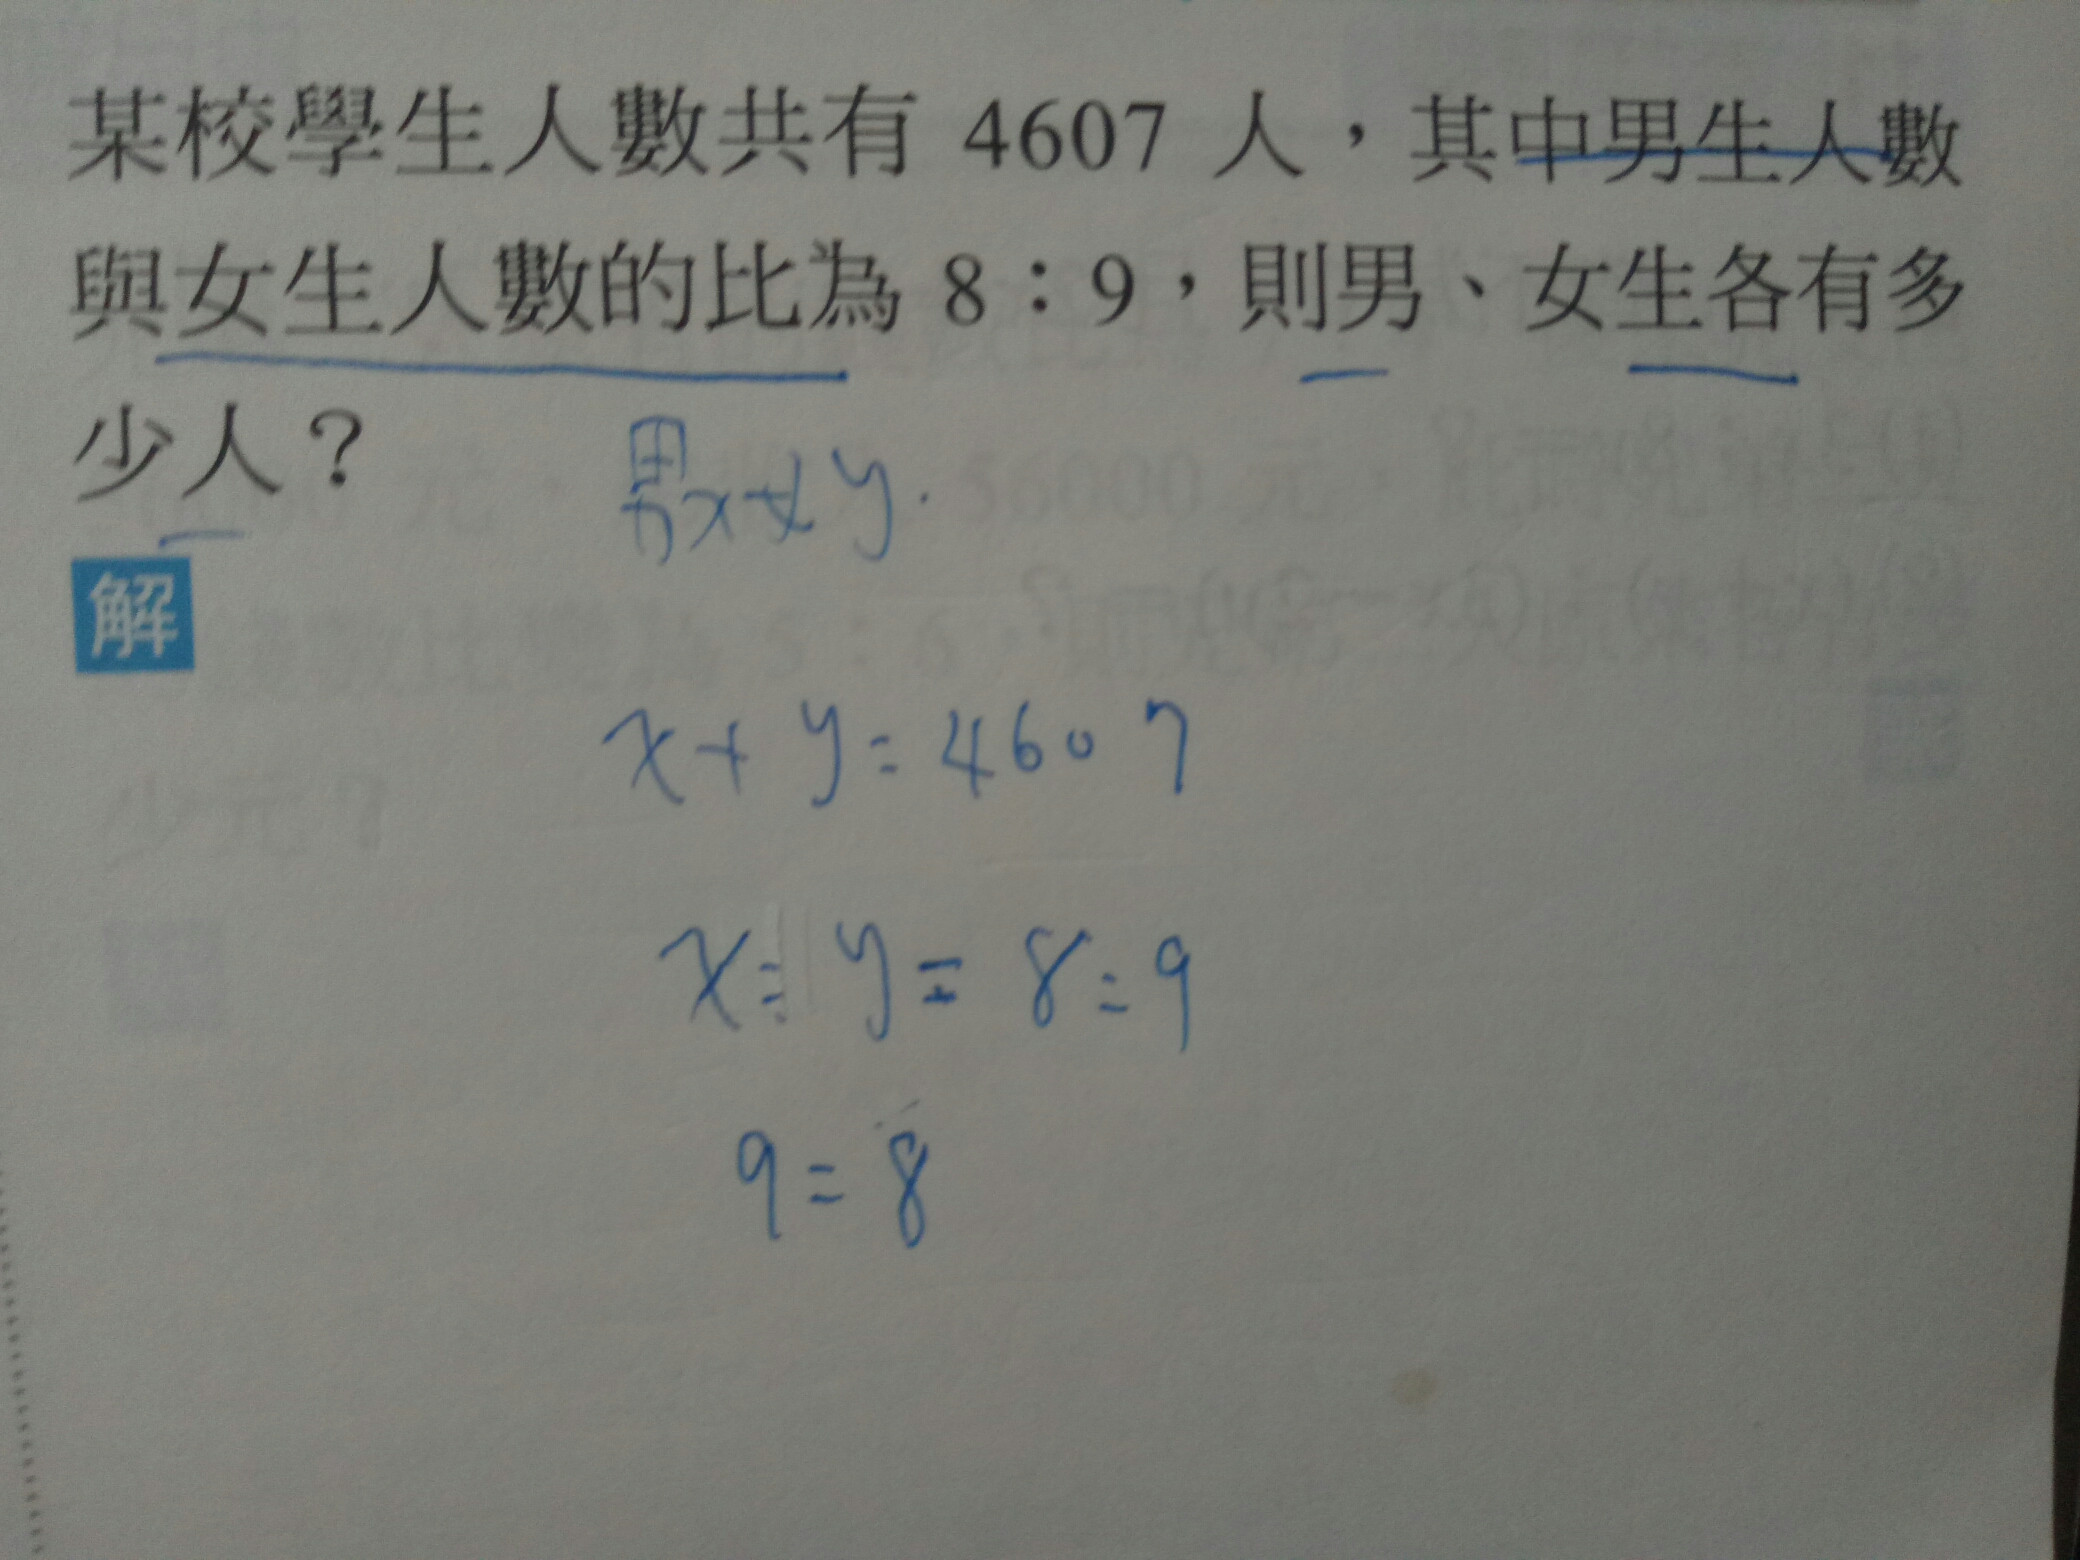 某校學生人數共有 4607 人，其中男生人數
與女生人數的比為 8：9，則男、女生各有多
少人？
男x女y.
解
x+y=4607
x:y=8:9
9=8